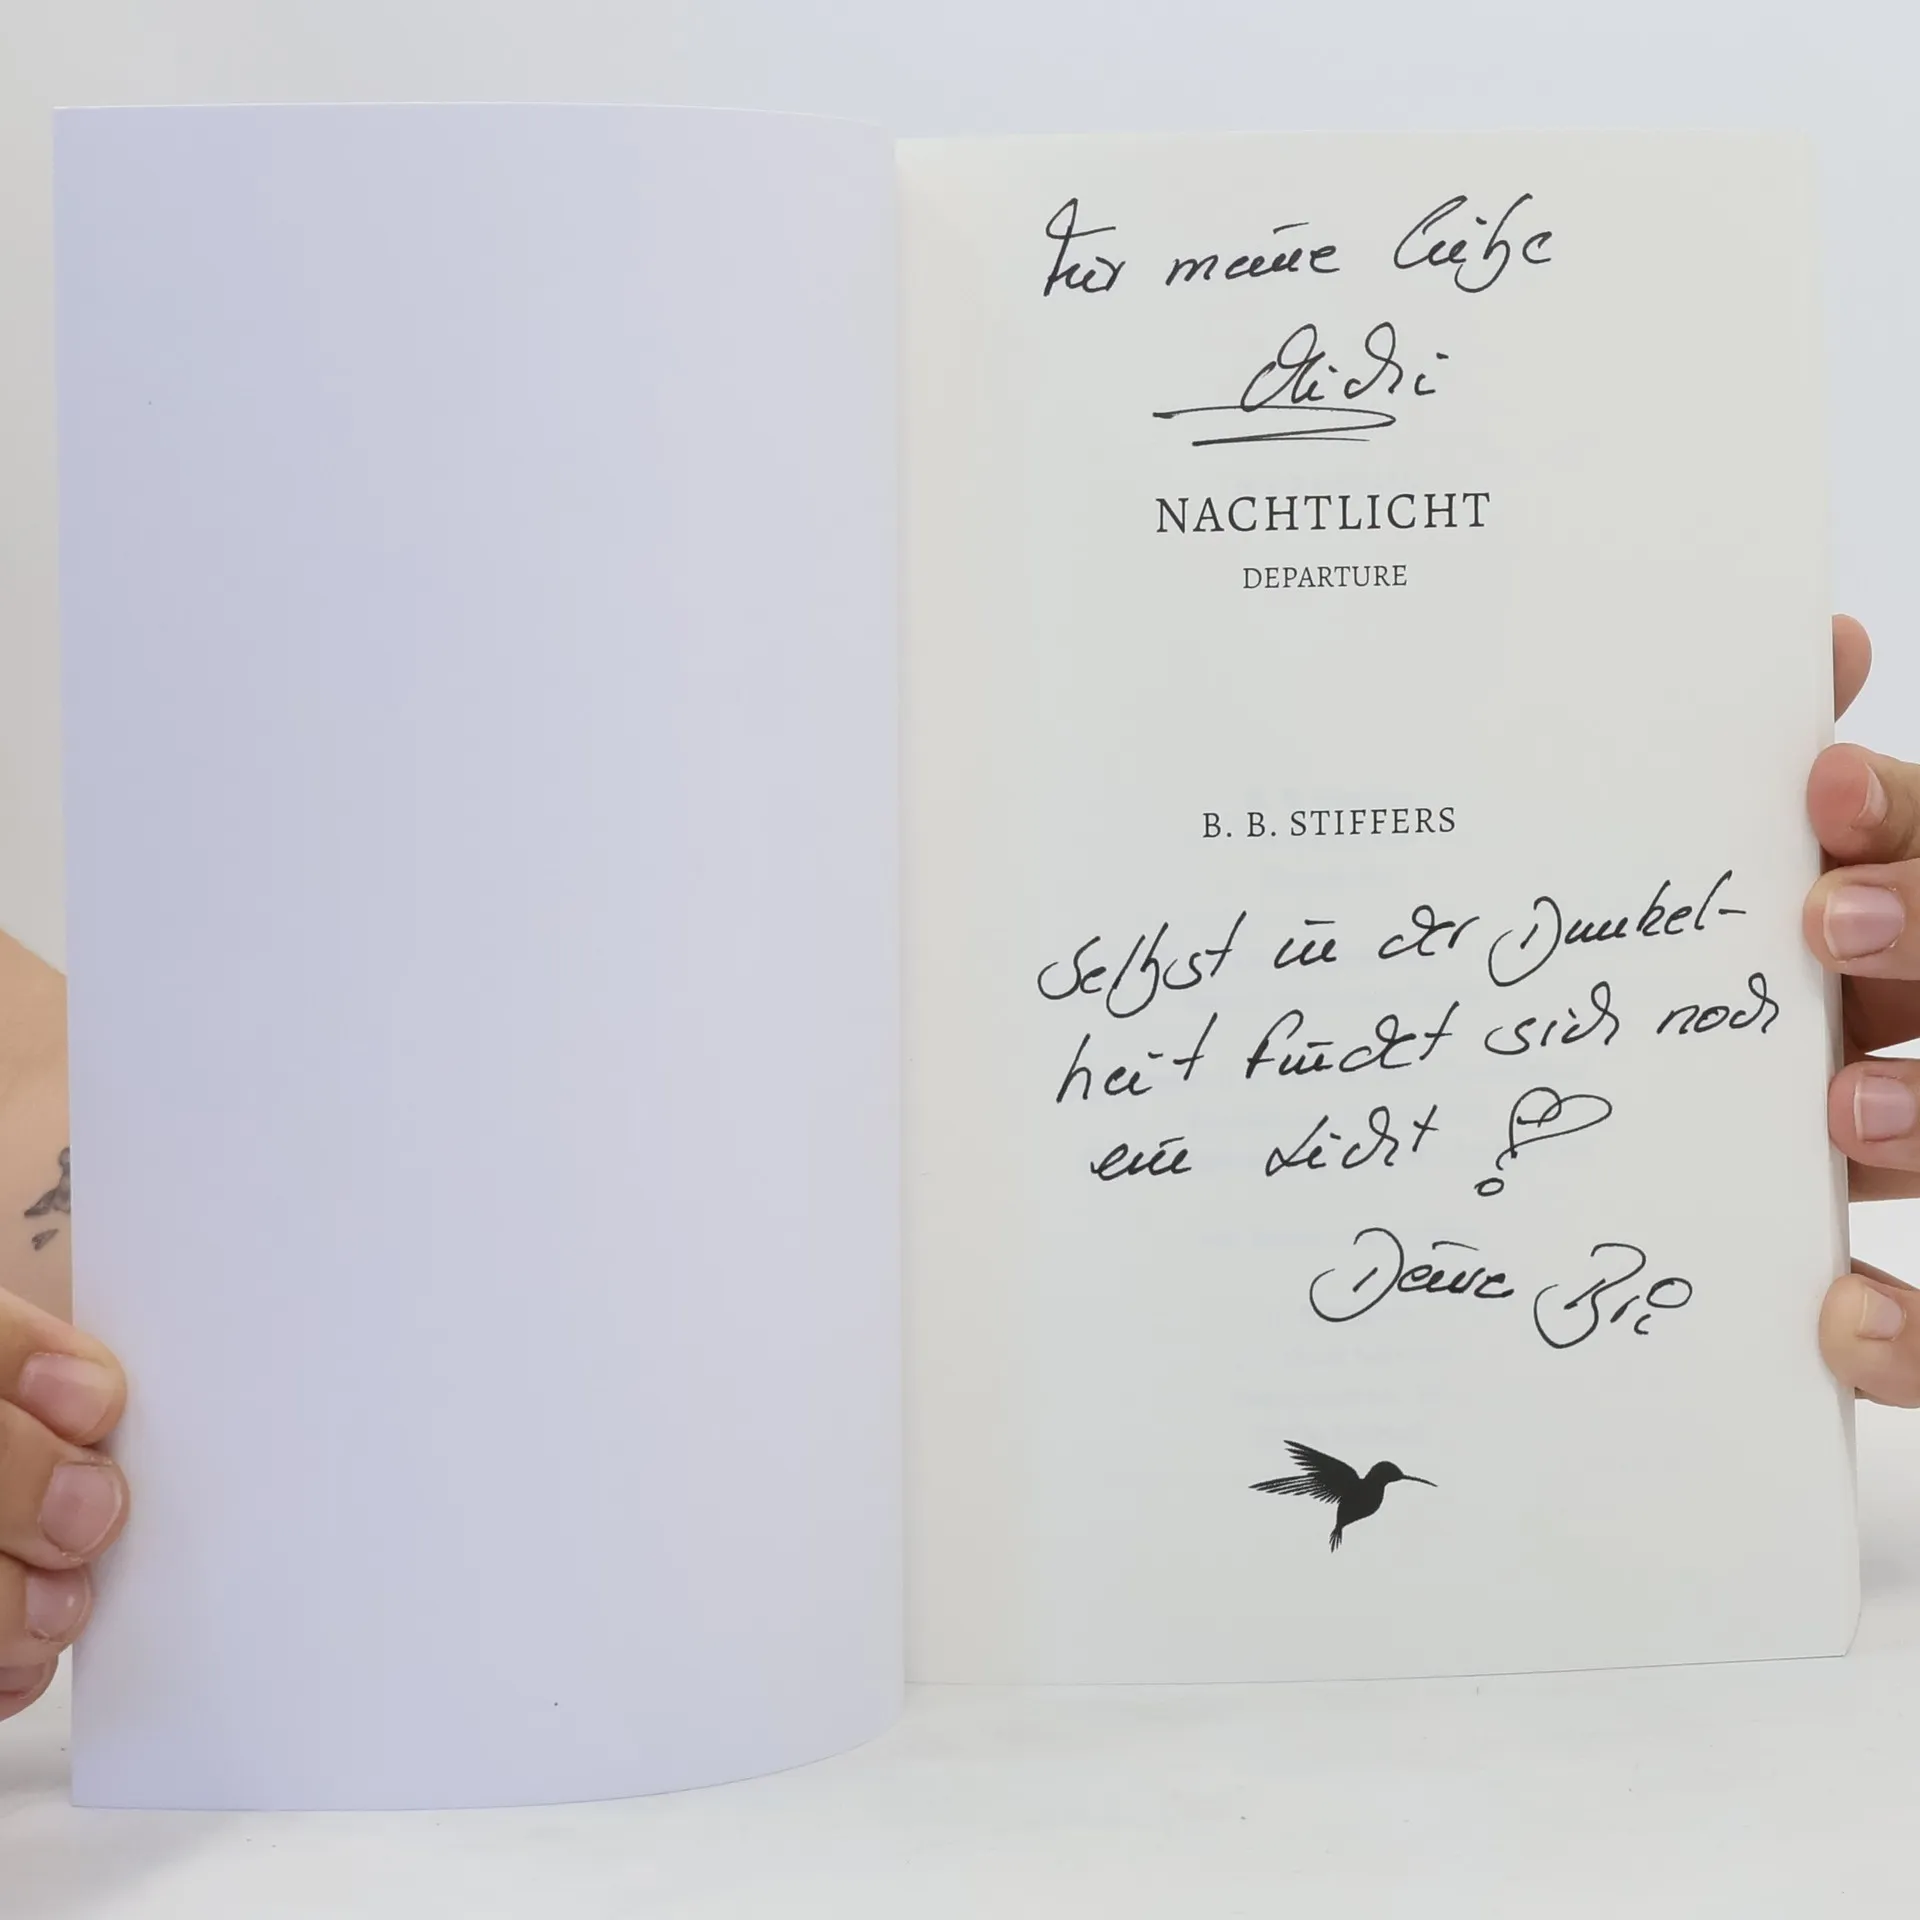 Für meine liebe
Michi
NACHTLICHT
DEPARTURE
B. B. STIFFERS
Selbst in der Dunkel-
heit findet sich noch
ein Licht
Deine Bri